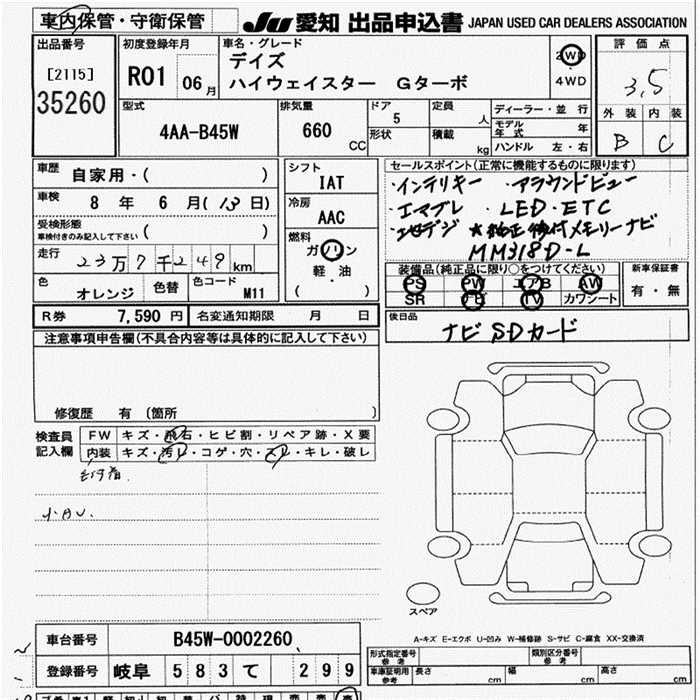 車内保管・守衛保管
JU 愛知 出品申込書 JAPAN USED CAR DEALERS ASSOCIATION
出品番号
[2115]
35260
初度登録年月
R01 06月
車名・グレード
デイズ
ハイウェイスター Gターボ
2WD
4WD
評価点
3.5
外装 内装
B C
型式
4AA-B45W
排気量
660 CC
ドア
5
形状
定員
人
積載
kg
ディーラー・並行
モデル年式 年
ハンドル 左・右
車歴
自家用・( )
車検
8 年 6 月(13日)
受検形態
車検付きのみ記入して下さい ( )
走行
23万7千249km
色
オレンジ
色替
色コード
M11
シフト
IAT
冷房
AAC
燃料
ガソリン
軽・油
( )
セールスポイント(正常に機能するものに限ります)
・インテリキー ・アラウンドビュー
・エマブレ ・LED・ETC
★純正後付メモリーナビ
MM318D-L
装備品(純正品に限り○をつけてください)
PS PW エアB AW
SR ナビ TV カワシート
新車保証書
有・無
R券 7,590 円
名変通知期限 月 日
後日品
ナビSDカード
注意事項申告欄(不具合内容等は具体的に記入して下さい)
修復歴 有 (箇所 )
検査員
記入欄
FW キズ・飛石・ヒビ割・リペア跡・X要
内装 キズ・汚レ・コゲ・穴・スレ・キレ・破レ
小AU.
スペア
A-キズ E-エクボ U-凹み W-補修跡 S-サビ C-腐食 XX-交換済
車台番号 B45W-0002260
登録番号 岐阜 583 て 299
型式指定番号
参考
類別区分番号
参考
車庫証明用
参考
長さ cm 幅 cm 高さ cm